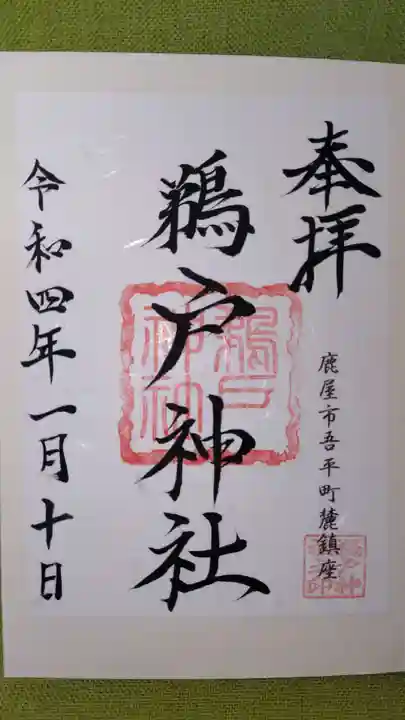 奉拝
鹿屋市吾平町麓鎮座
鵜戸神社
鵜戸神社
令和四年一月十日